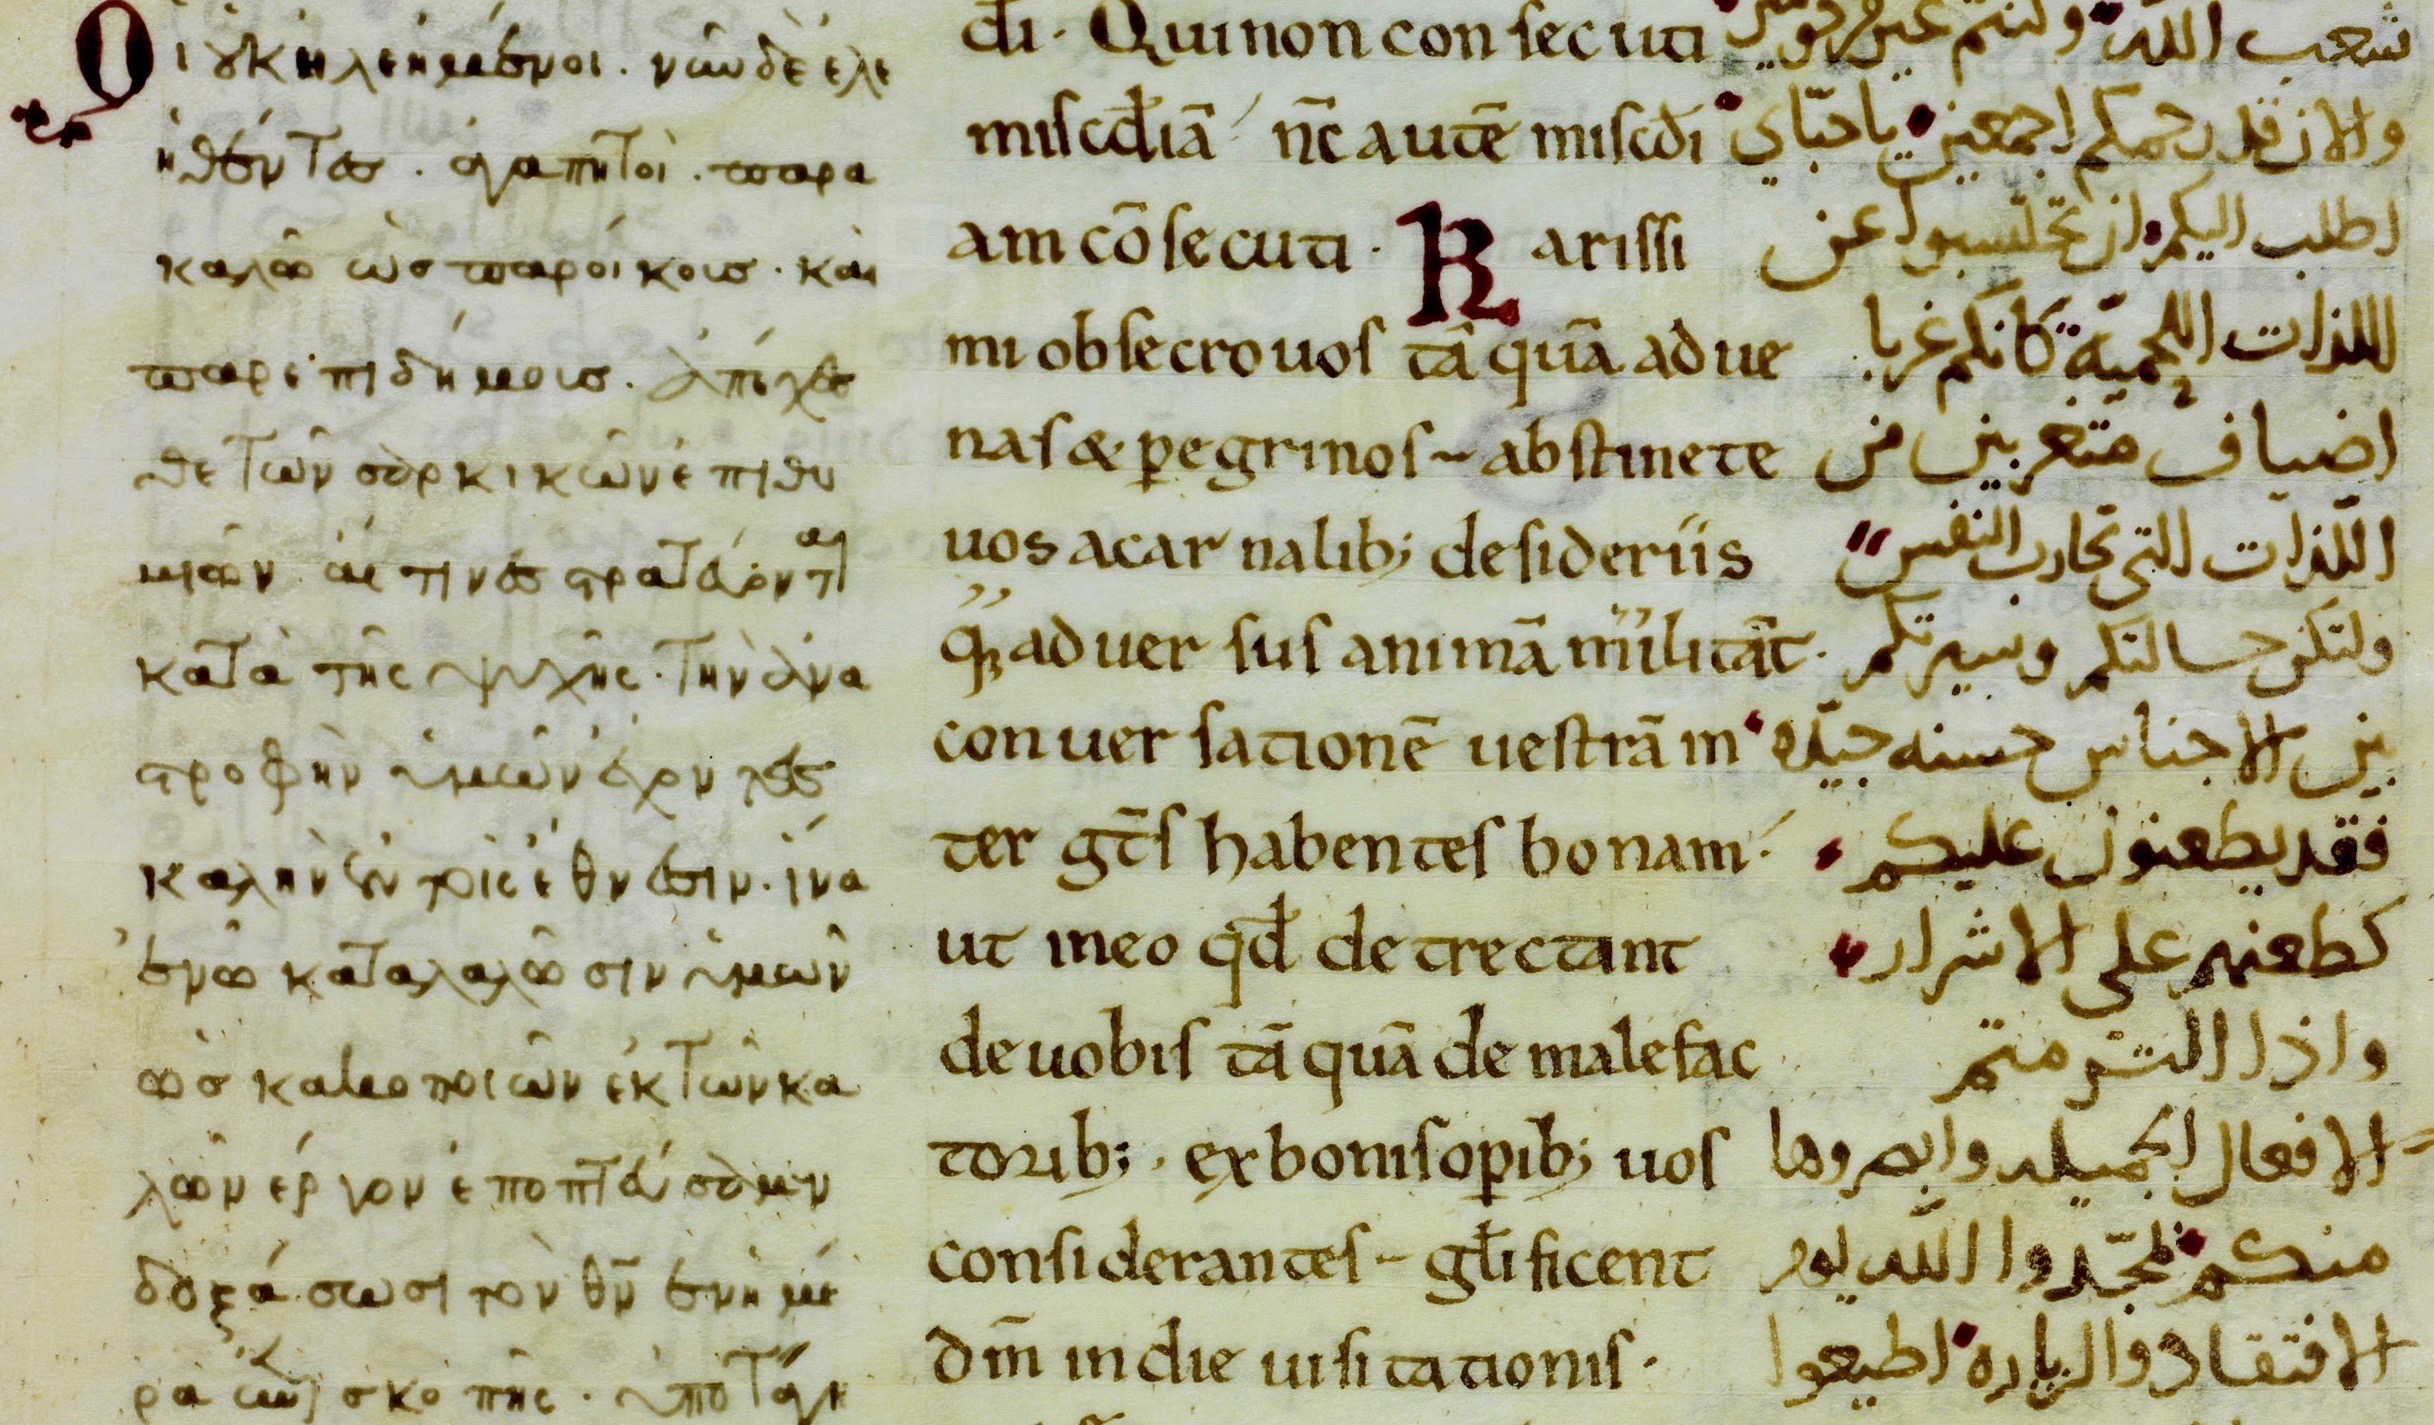 Οἱ οὐκ ἠλεημένοι . νῦν δὲ ἐλε
ηθέντες . ἀγαπητοὶ . παρα
καλῶ ὡς παροίκους . καὶ
παρεπιδήμους . ἀπέχεσ
θε τῶν σαρκικῶν ἐπιθυ
μιῶν αἵτινες στρατεύονται
κατὰ τῆς ψυχῆς . τὴν ἀνα
στροφὴν ὑμῶν ἔχοντες
καλὴν ἐν τοῖς ἔθνεσιν . ἵνα
ἐν ᾧ καταλαλῶσιν ὑμῶν
ὡς κακοποιῶν ἐκ τῶν κα
λῶν έργον ἐποπτεύσαμεν
δοξάσωσι τὸν θν̅ ἐν ἡμέ
ρα ἐπισκοπῆς . ὑποτάγη
d̅i . Qui non consecuti
misc̅diā nc̅ autē misc̅di
am cōsecuti . Karissi
mi obsecro uos tā quā adue
nas & ꝑegrinos abstinete
uos a carnalib; desideriis
q̨ aduersus animā militāt .
conuersationē uestrā in
ter gt̅s habentes bonam
ut in eo qd̅ detrectant
de uobis tā quā de malefac
torib; . ex bonis oꝑib; uos
considerantes gl̅ificent
dm̅ in die uisitationis .
شعب الله وكنتم غير مرحومين
والان قد رحمكم اجمعين يا حباي
اطلب اليكم ان تحتسبوا عن
اللذات اللحميّة كانكم غربا
اضياف متغربين من
اللذات التي تحارب النفس
ولتكن حسالتكم وسيرتكم
بين الاجناس حسنه جيّده
فقد يطعنون عليكم
كطعنهم على الاشرار
واذا التزمتم
الافعال الجميله وابصروها
منكم يمجّدوا الله يوم
الافتقاد والزياره اطيعوا